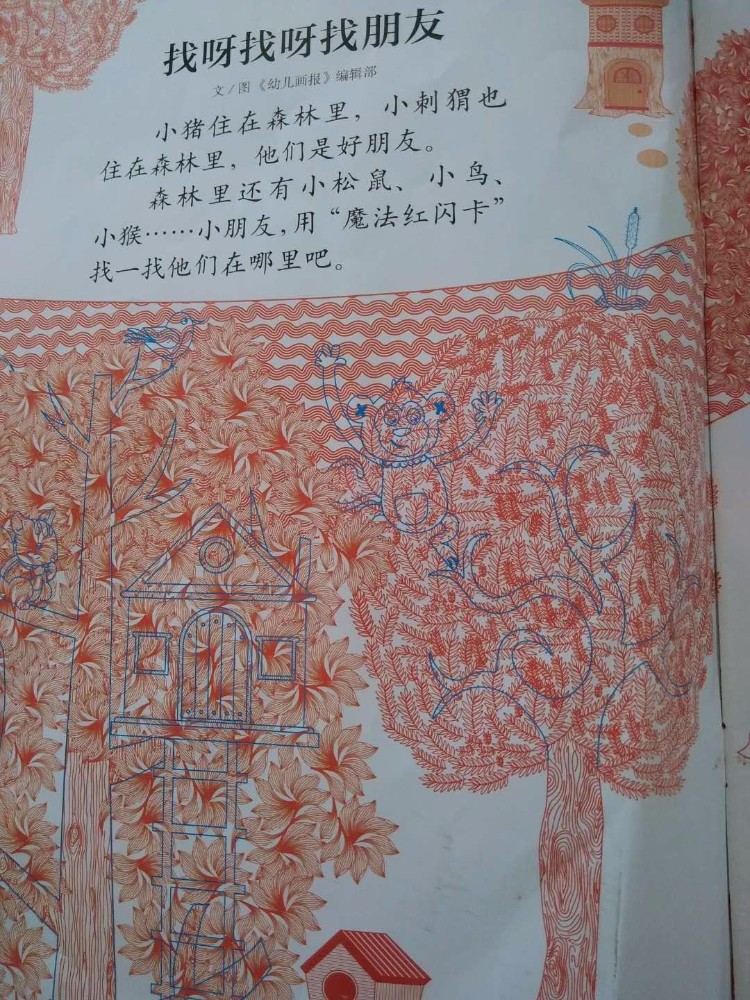 找呀找呀找朋友
文/图《幼儿画报》编辑部
小猪住在森林里，小刺猬也
住在森林里，他们是好朋友。
森林里还有小松鼠、小鸟、
小猴……小朋友，用“魔法红闪卡”
找一找他们在哪里吧。